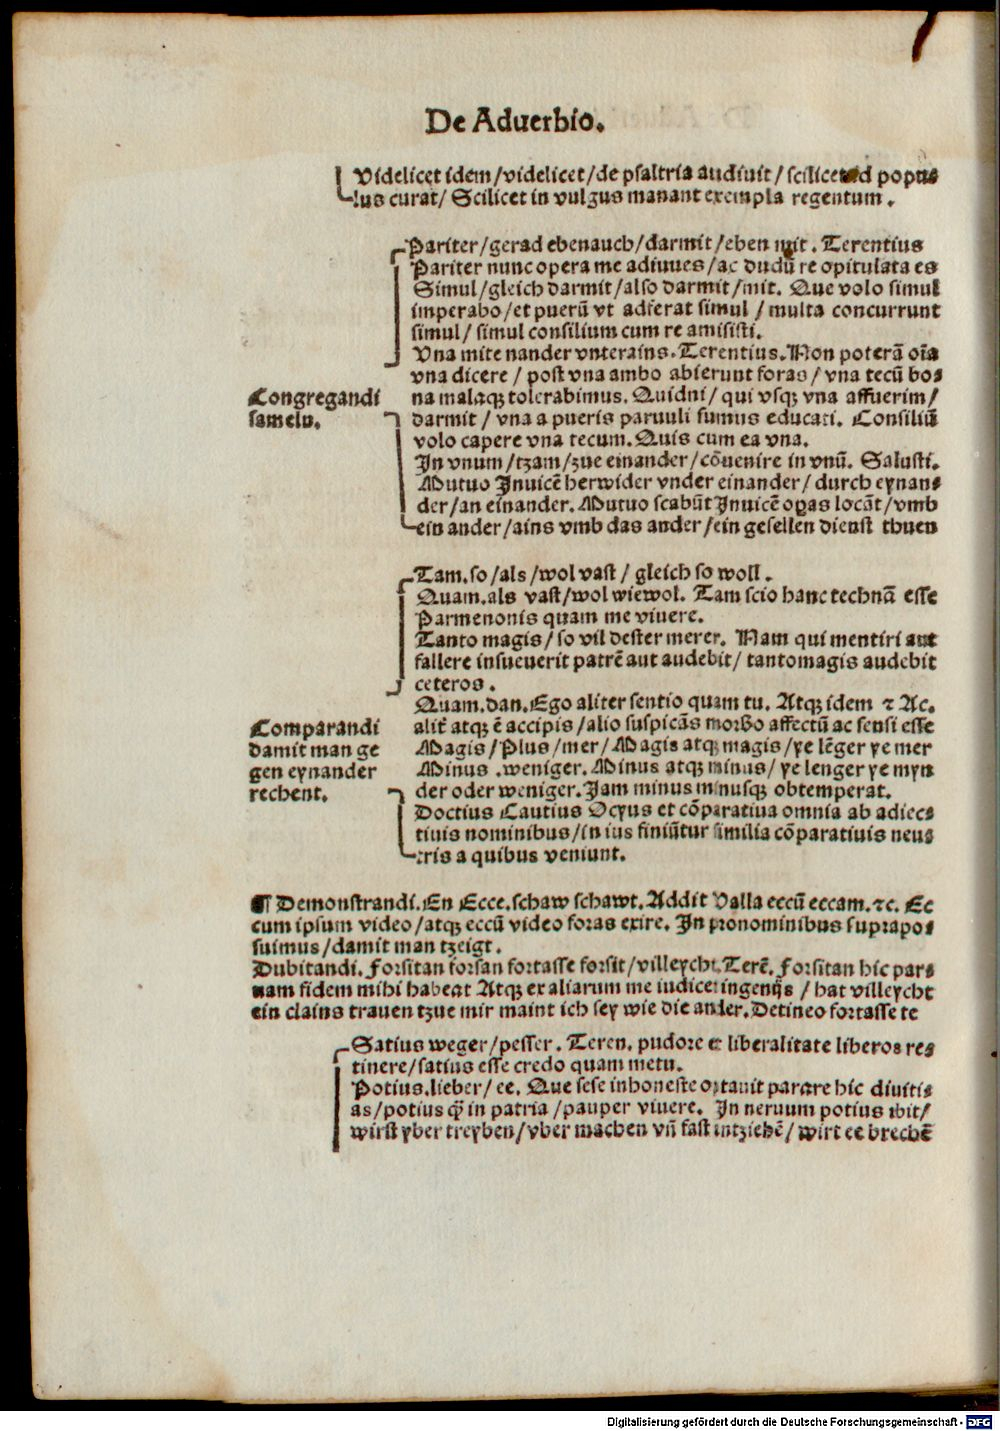 De Aduerbio.
Videlicet idem/videlicet/de psaltria audiuit/scilicet id popu⸗
lus curat/ Scilicet in vulgus manant exempla regentum.
Pariter/gerad ebenauch/darmit/eben mit. Terentius
Pariter nunc opera me adiuues/ac dudũ re opitulata es
Simul/gleich darmit/also darmit/mit. Que volo simul
imperabo/et puerũ vt adferat simul / multa concurrunt
simul/ simul consilium cum re amisisti.
Vna mite nander vnterains. Terentius. Non poterã oĩa
vna dicere / post vna ambo abierunt foras / vna tecũ bo⸗
Congregandi
sameln.
na malaqꝫ tolerabimus. Quidni/ qui vsqꝫ vna affuerim/
darmit / vna a pueris paruuli sumus educati. Consiliũ
volo capere vna tecum. Quis cum ea vna.
In vnum/tzam/zue einander/cõuenire in vnũ. Salusti.
Mutuo Inuicẽ herwider vnder einander/durch eynan⸗
der/an einander. Mutuo scabũt Inuicẽ oꝑas locãt/vmb
ein ander/ains vmb das ander/ein gesellen dienst thuen
Tam.so/als/wol vast / gleich so woll.
Quam.als vast/wol wiewol. Tam scio hanc technã esse
Parmenonis quam me viuere.
Tanto magis/so vil dester merer. Nam qui mentiri aut
fallere insueuerit patrẽ aut audebit/ tantomagis audebit
ceteros.
Quam.dan.Ego aliter sentio quam tu. Atqꝫ idem ⁊ Ac.
Comparandi
damit man ge
gen eynander
rechent.
alit̃ atqꝫ ẽ accipis/alio suspicãs morbo affectũ ac sensi esse
Magis/Plus/mer/Magis atqꝫ magis/ye lẽger ye mer
Minus .weniger. Minus atqꝫ minus/ ye lenger ye myn
der oder weniger. Jam minus minusqꝫ obtemperat.
Doctius Cautius Ocyus et cõparatiua omnia ab adiec⸗
tiuis nominibus/in ius finiũtur similia cõparatiuis neu⸗
tris a quibus veniunt.
¶ Demonstrandi. En Ecce.schaw schawt. Addit Valla eccũ eccam.⁊c. Ec
cum ipsum video/atqꝫ eccũ video foras exire. In pronominibus suprapo⸗
suimus/damit man tzeigt.
Dubitandi. Forsitan forsan fortasse forsit/villeycht.Terẽ. Forsitan hic par⸗
uam fidem mihi habeat Atqꝫ ex aliarum me iudicet ingenijs / hat villeycht
ein clains trauen tzue mir maint ich sey wie die ander. Detineo fortasse te
Satius weger/pesser. Teren. pudore et liberalitate liberos re⸗
tinere/satius esse credo quam metu.
Potius.lieber/ ee. Que sese inhoneste optauit parare hic diuiti⸗
as/potius q̃ in patria /pauper viuere. In neruum potius ibit/
wirst yber treyben/vber machen vñ fast intziehẽ/ wirt ee brechẽ
Digitalisierung gefördert durch die Deutsche Forschungsgemeinschaft - DFG